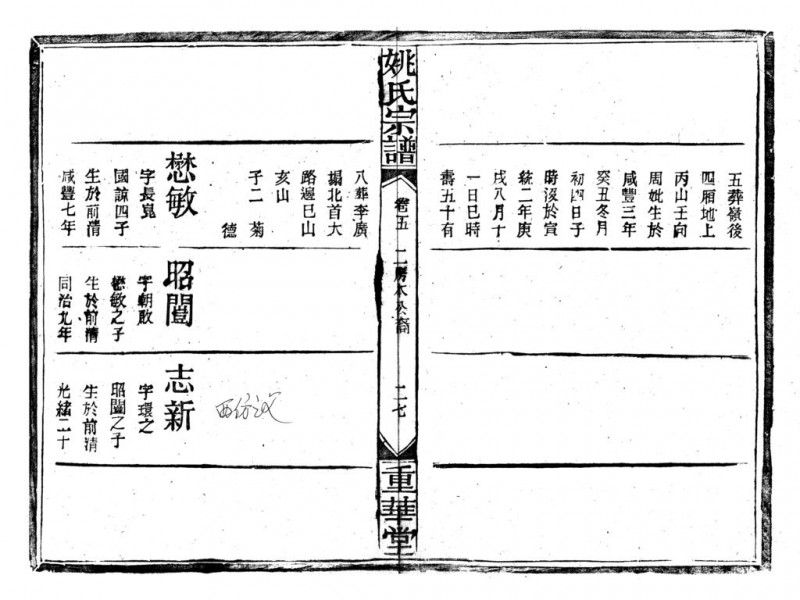 五葬嶺後
四厢地上
丙山壬向
周妣生於
咸豐三年
癸丑冬月
初四日子
時沒於宣
統二年庚
戌八月十
一日巳時
壽五十有
姚氏宗譜
卷五
二房本公裔
二七
重華堂
八葬李廣
塌北首大
路邊巳山
亥山
子二
菊
德
懋敏
字長崑
國諒四子
生於前清
咸豐七年
昭闓
字朝敢
懋敏之子
生於前清
同治九年
志新
字環之
昭闓之子
生於前清
光緒二十